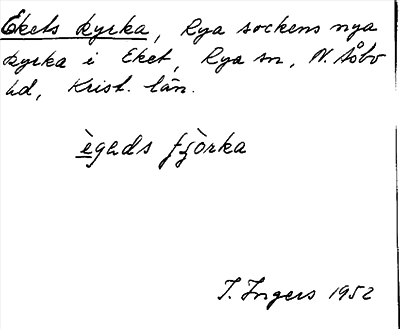 Ekets kyrka, Rya sockens nya
kyrka i Eket, Rya sn, N. Åsbo
hd, Krist. län.
ègads fjòrka
I. Ingers 1952